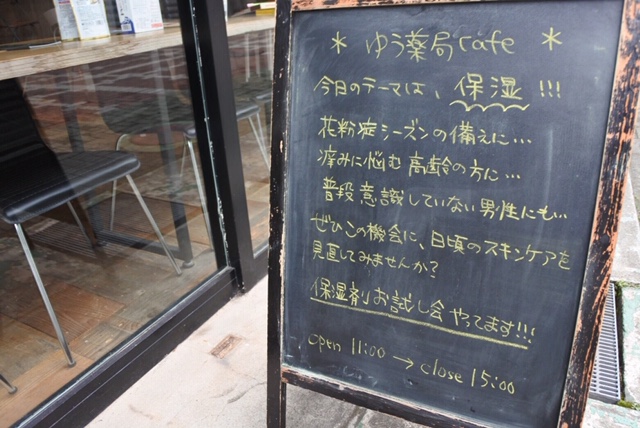 * ゆう薬局cafe *
今日のテーマは、保湿!!!
花粉症シーズンの備えに…
痒みに悩む高齢の方に…
普段意識していない男性にも…
ぜひこの機会に、日頃のスキンケアを
見直してみませんか?
保湿剤お試し会やってます!!!
open 11:00 → close 15:00